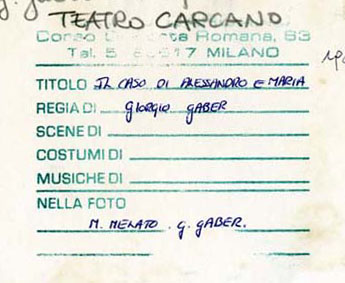 TEATRO CARCANO
Corso Romana, 63
Tel. 5 17 MILANO
TITOLO IL CASO DI ALESSANDRO E MARIA
REGIA DI GIORGIO GABER
SCENE DI
COSTUMI DI
MUSICHE DI
NELLA FOTO
M. MELATO. G. GABER.